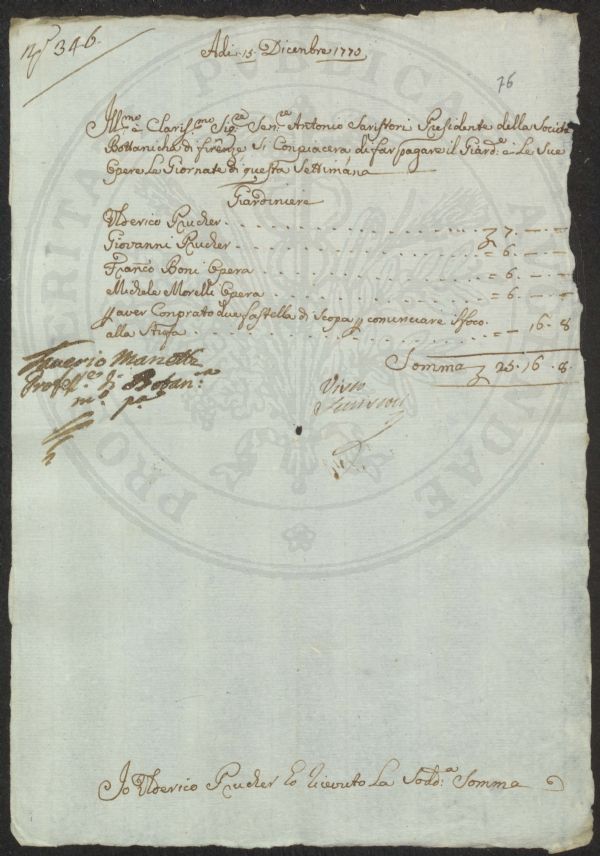 N.º 346.
Adi 15. Dicembre 1770
76
Ill.mo e Claris.mo Sig.re Sen.re Antonio Saristori Presidente della Società
Bottanicha di firenze Si Conpiacera di far pagare il Giard.e e Le Sue
Opere Le Giornate di questa Settimana
Giardiniere
Ulderico Prucher 7. — . —
Giovanni Prucher = 6. — . —
Franc.o Boni Opera = 6. — . —
Michele Morelli Opera = 6. — . —
p aver Conprato due fastella di Scopa p cominciare ffoco
alla Stufa = — 16 . 8
Somma 25 . 16 . 8.
Saverio Manetti
Proff.e di Botan.a
m.o p.a
Io Ulderico Prucher Ho riceuto La Sodd.a Somma
PUBLICA
PROSPERITATIS
AUGENDAE